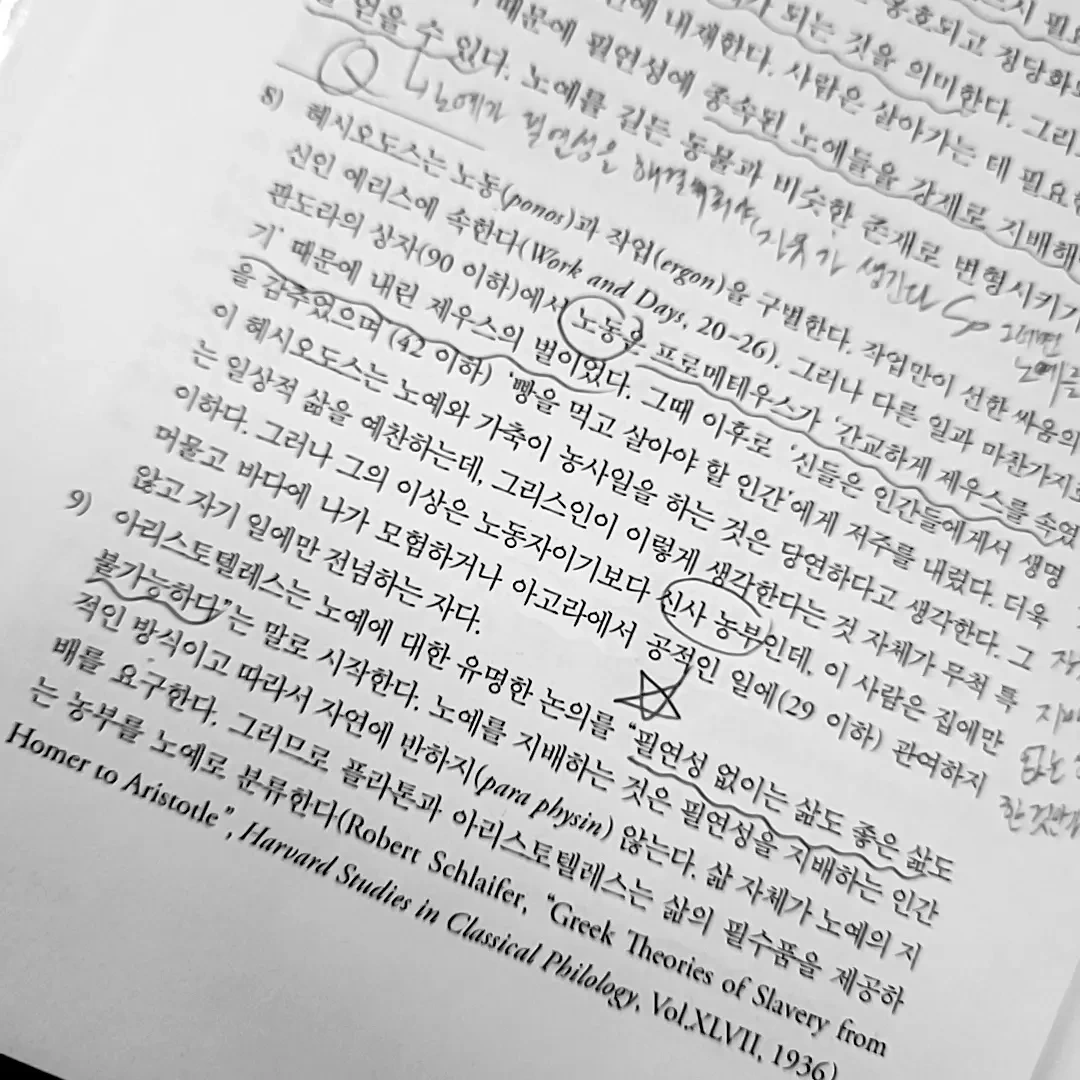 시 필요
옹호되고 정당화되
가 되는 것을 의미한다. 그리
때문에 필연성에 종속된 노예들을 강제로 지배해
에 내재한다. 사람은 살아가는 데 필요한
을 얻을 수 있다. 노예를 길든 동물과 비슷한 존재로 변형시키기
노예가 필연성을
생긴다
8) 헤시오도스는 노동(ponos)과 작업(ergon)을 구별한다. 작업만이 선한 싸움의
신인 에리스에 속한다(Work and Days, 20-26). 그러나 다른 일과 마찬가지로
판도라의 상자(90 이하)에서 노동은 프로메테우스가 '간교하게 제우스를 속였
기' 때문에 내린 제우스의 벌이었다. 그때 이후로 '신들은 인간들에게서 생명
을 감추었으며 (42 이하) '빵을 먹고 살아야 할 인간'에게 저주를 내렸다. 더욱
이 헤시오도스는 노예와 가축이 농사일을 하는 것은 당연하다고 생각한다. 그
는 일상적 삶을 예찬하는데, 그리스인이 이렇게 생각한다는 것 자체가 무척 특
이하다. 그러나 그의 이상은 노동자이기보다 신사 농부인데, 이 사람은 집에만
머물고 바다에 나가 모험하거나 아고라에서 공적인 일에(29 이하) 관여하지
않고 자기 일에만 전념하는 자다.
9) 아리스토텔레스는 노예에 대한 유명한 논의를 "필연성 없이는 삶도 좋은 삶도
불가능하다"는 말로 시작한다. 노예를 지배하는 것은 필연성을 지배하는 인간
적인 방식이고 따라서 자연에 반하지(para physin) 않는다. 삶 자체가 노예의 지
배를 요구한다. 그러므로 플라톤과 아리스토텔레스는 삶의 필수품을 제공하
는 농부를 노예로 분류한다(Robert Schlaifer, "Greek Theories of Slavery from
Homer to Aristotle", Harvard Studies in Classical Philology, Vol.XLVII, 1936)